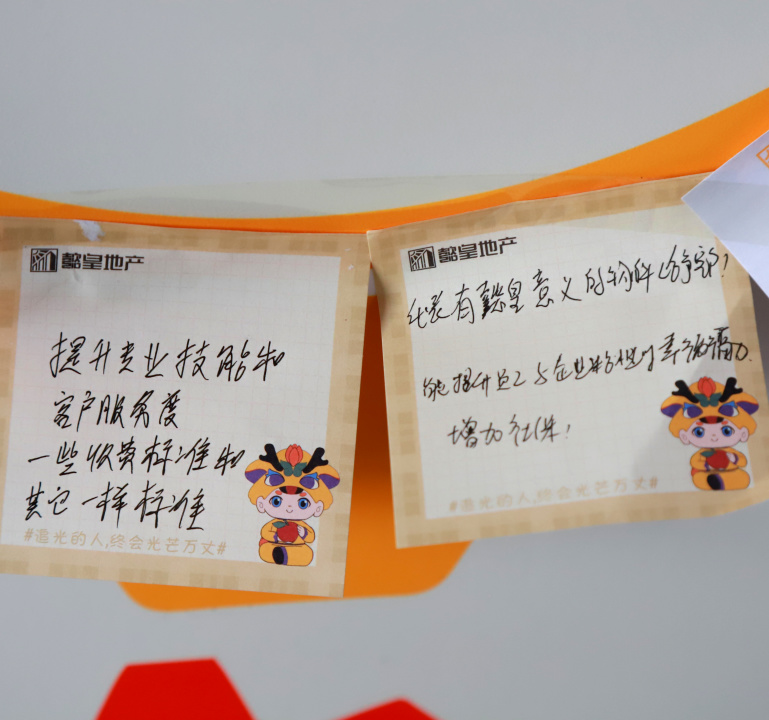 懿皇地产
提升专业技能和
客户服务度
一些收费标准和
其它一样标准
#追光的人,终会光芒万丈#
懿皇地产
有懿皇意义的物件
能提升员工与企业
增加社保!
#追光的人,终会光芒万丈#